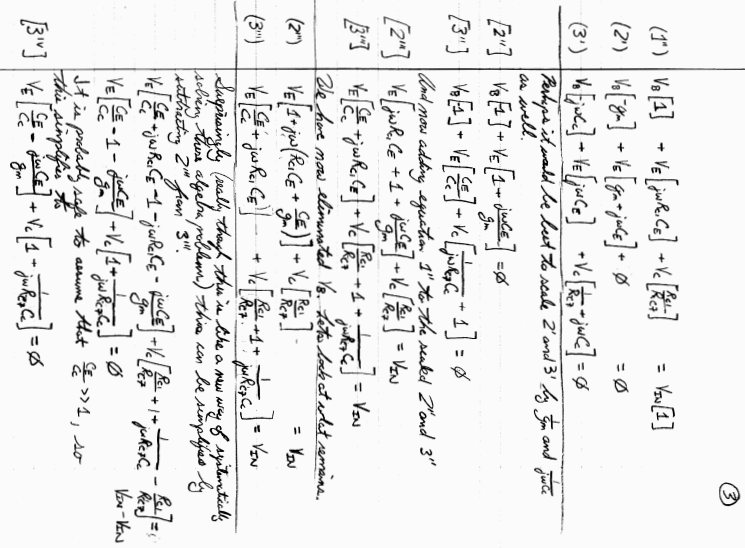 ③
(1'') V_B[1] + V_E[jωR_C1C_E] + V_C[R_C1/R_C7] = V_IN[1]
(2') V_B[-gm] + V_E[gm+jωC_E] + ∅ = ∅
(3') V_B[jωC_C] + V_E[jωC_E] + V_C[1/R_C7 + jωC] = ∅
Perhaps it would be best to scale 2' and 3' by 1/gm and 1/jωC_C
as well.
[2''] V_B[1] + V_E[1 + jωC_E/gm] = ∅
[3''] V_B[1] + V_E[C_E/C_C] + V_C[1/jωR_C7C_C + 1] = ∅
And now adding equation 1'' to the scaled 2'' and 3''
[2'''] V_E[jωR_C1C_E + 1 + jωC_E/gm] + V_C[R_C1/R_C7] = V_IN
[3'''] V_E[C_E/C_C + jωR_C1C_E] + V_C[R_C1/R_C7 + 1 + 1/jωR_C7C_C] = V_IN
We have now eliminated V_B. Lets look at what remains.
(2''') V_E[1+jω(R_C1C_E + C_E/gm)] + V_C[R_C1/R_C7] = V_IN
(3''') V_E[C_E/C_C + jωR_C1C_E] + V_C[R_C1/R_C7 + 1 + 1/jωR_C7C_C] = V_IN
Surprisingly (really though this is like a new way of systematically
solving these algebra problems) this can be simplified by
subtracting 2''' from 3'''.
V_E[C_E/C_C + jωR_C1C_E - 1 - jωR_C1C_E - jωC_E/gm] + V_C[R_C1/R_C7 + 1 + 1/jωR_C7C_C - R_C1/R_C7] =
V_IN - V_IN
V_E[C_E/C_C - 1 - jωC_E/gm] + V_C[1 + 1/jωR_C7C_C] = ∅
It is probably safe to assume that C_E/C_C >> 1, so
this simplifies to
[3''''] V_E[C_E/C_C - jωC_E/gm] + V_C[1 + 1/jωR_C7C_C] = ∅